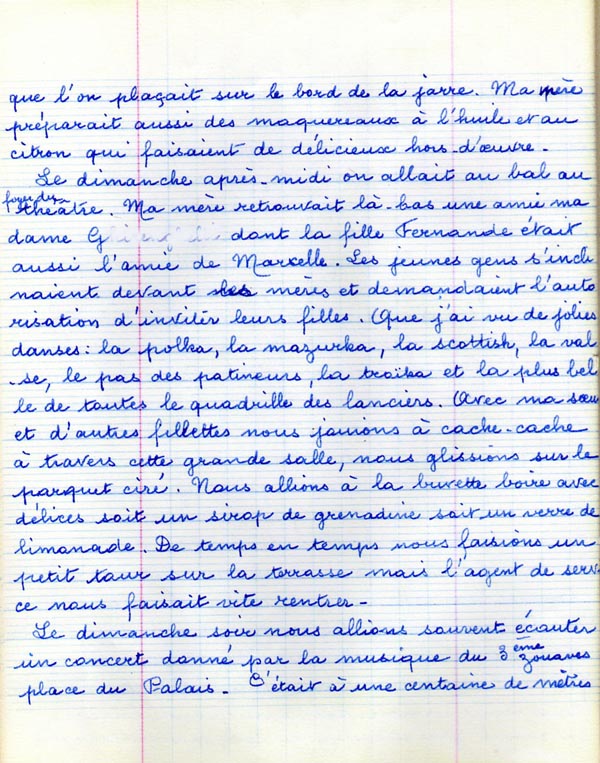 que l'on plaçait sur le bord de la jarre. Ma mère
préparait aussi des maquereaux à l'huile et au
citron qui faisaient de délicieux hors-d'œuvre.
Le dimanche après-midi on allait au bal au
foyer du
théâtre. Ma mère retrouvait là-bas une amie ma
dame G dont la fille Fernande était
aussi l'amie de Marcelle. Les jeunes gens s'incli
naient devant les mères et demandaient l'auto
risation d'inviter leurs filles. Que j'ai vu de jolies
danses: la polka, la mazurka, la scottish, la val
-se, le pas des patineurs, la troïka et la plus bel
le de toutes le quadrille des lanciers. Avec ma sœur
et d'autres fillettes nous jouions à cache-cache
à travers cette grande salle, nous glissions sur le
parquet ciré. Nous allions à la buvette boire avec
délices soit un sirop de grenadine soit un verre de
limonade. De temps en temps nous faisions un
petit tour sur la terrasse mais l'agent de servi
ce nous faisait vite rentrer-
Le dimanche soir nous allions souvent écouter
un concert donné par la musique du 3ème zouaves
place du Palais- C'était à une centaine de mètres